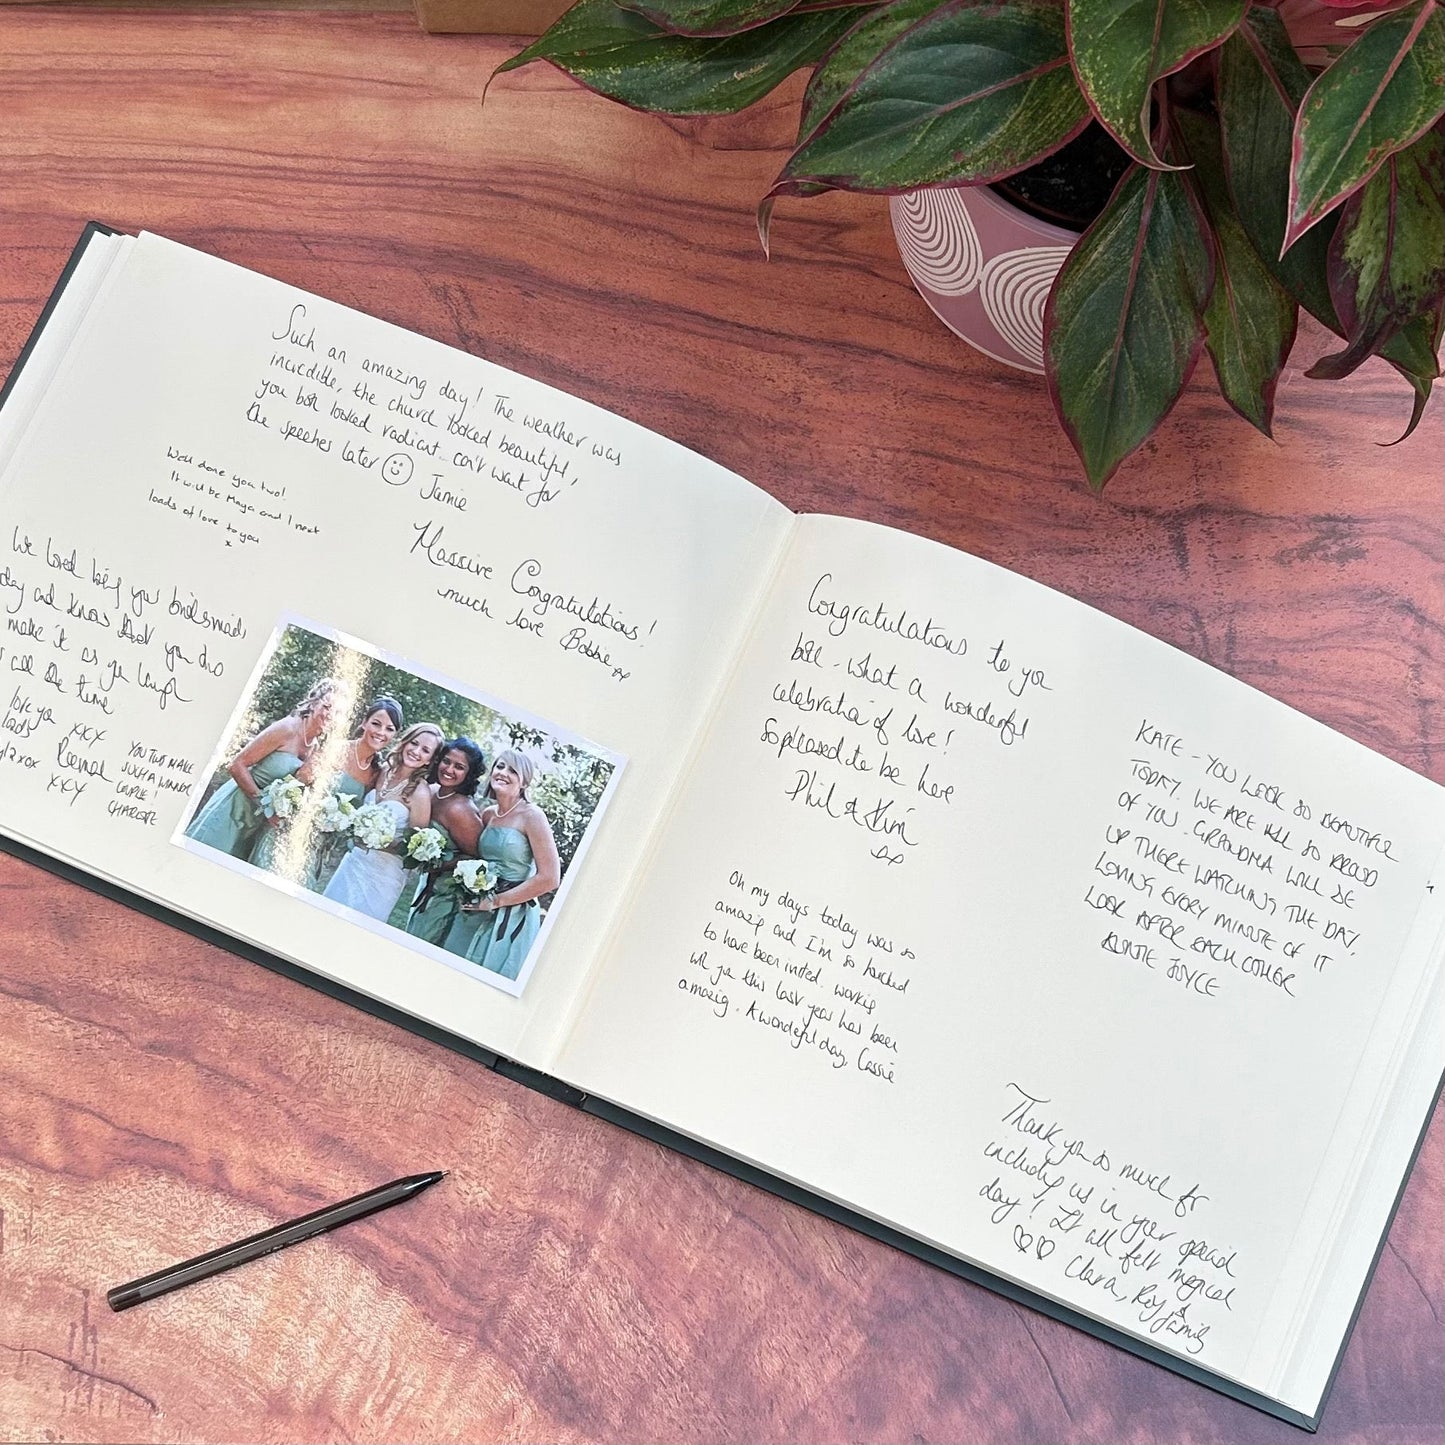 Such an amazing day! The weather was
incredible, the church looked beautiful,
you both looked radiant.. can't wait for
the speeches later Jamie
Well done you two!
It will be Maya and I next
loads of love to you
x
Massive Congratulations!
much love Bobbie xx
We loved being your bridesmaids
day and know that you two
make it as you laugh
all the time
love you xxx
loads
xox xxx
YOU TWO MAKE
SUCH A WINNER
COUPLE!
Congratulations to you
both - what a wonderful
celebration of love!
So pleased to be here
Phil & Kim
xx
Oh my days today was so
amazing and I'm so
to have been invited. working
with you this last year has been
amazing. A wonderful day, Cassie
KATE - YOU LOOK SO BEAUTIFUL
TODAY. WE ARE ALL SO PROUD
OF YOU. GRANDMA WILL BE
UP THERE WATCHING THE DAY,
LOVING EVERY MINUTE OF IT
LOOK AFTER EACH OTHER
AUNTIE JOYCE
Thank you so much for
including us in your special
day! It all felt magical
Clara, Roy &
family